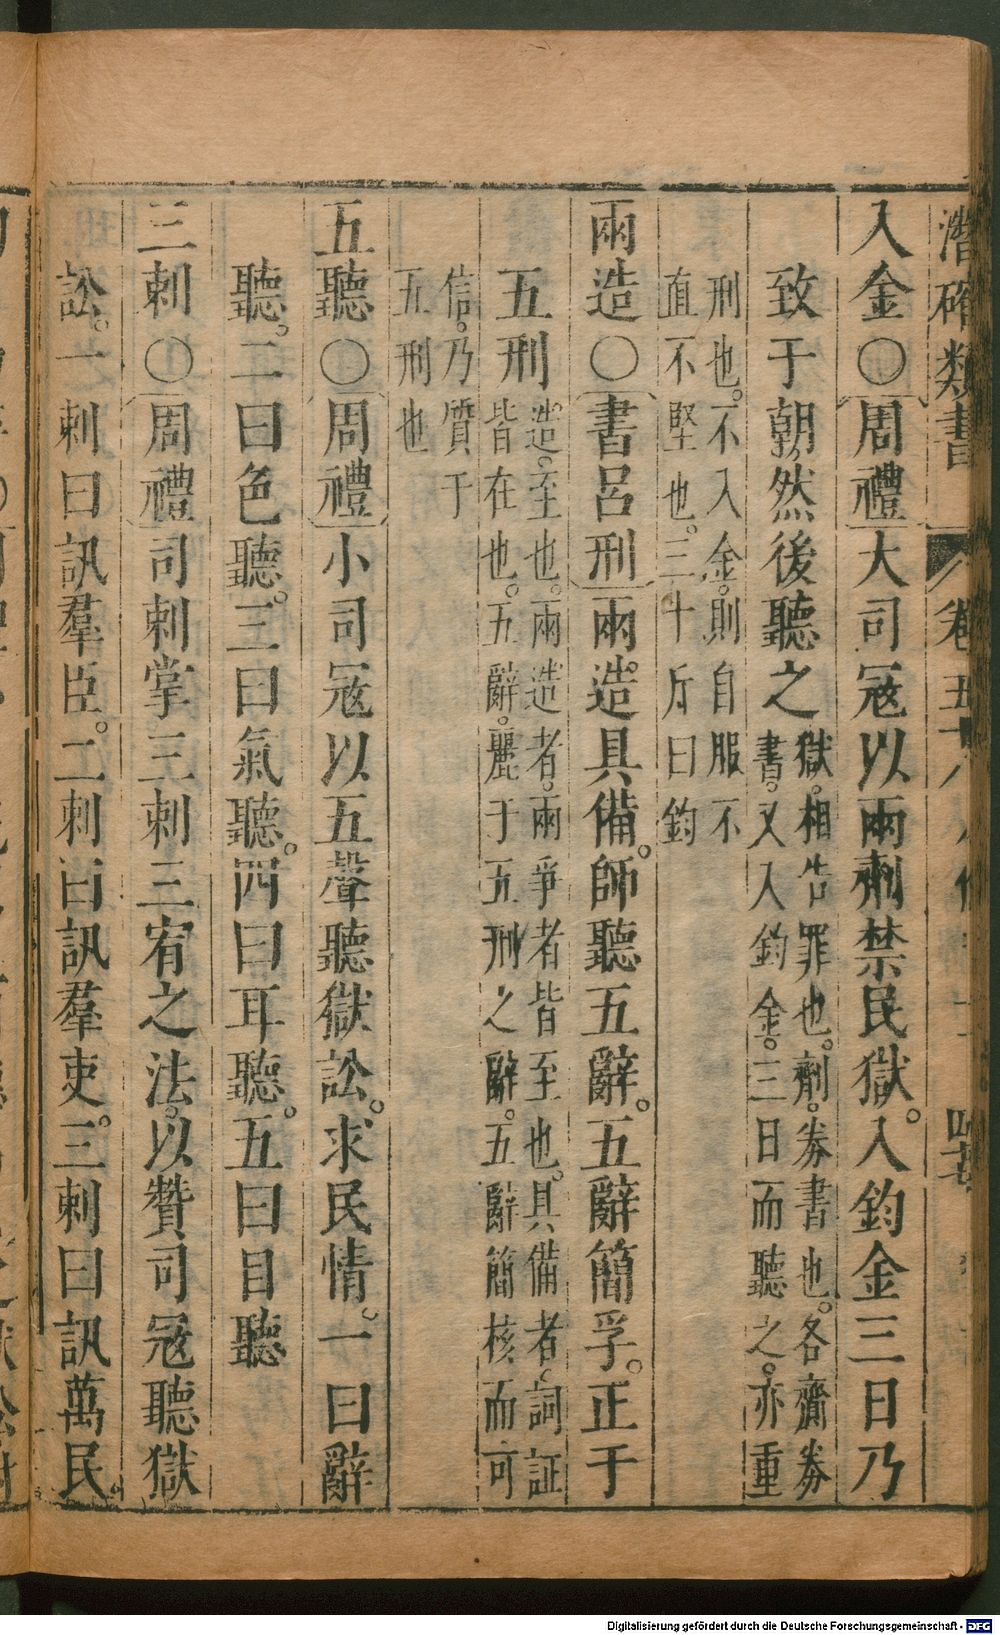 潛確類書 卷五十八
入金〇周禮大司冦以兩劑禁民獄。入鈞金三日乃
致于朝然後聽之
獄。相告罪也。劑。券書也。各齎券
書。又入鈞金。三日而聽之。亦重
刑也。不入金。則自服不
直不堅也。三十斤曰鈞
兩造〇書呂刑兩造具備。師聽五辭。五辭簡孚。正于
五刑
造。至也。兩造者。兩爭者皆至也。具備者。詞証
皆在也。五辭。麗于五刑之辭。五辭簡核而可
信。乃質于
五刑也
五聽〇周禮小司冦以五聲聽獄訟。求民情。一曰辭
聽。二曰色聽。三曰氣聽。四曰耳聽。五曰目聽
三刺〇周禮司刺掌三刺三宥之法。以贊司冦聽獄
訟。一刺曰訊羣臣。二刺曰訊羣吏。三刺曰訊萬民。
Digitalisierung gefördert durch die Deutsche Forschungsgemeinschaft - DFG